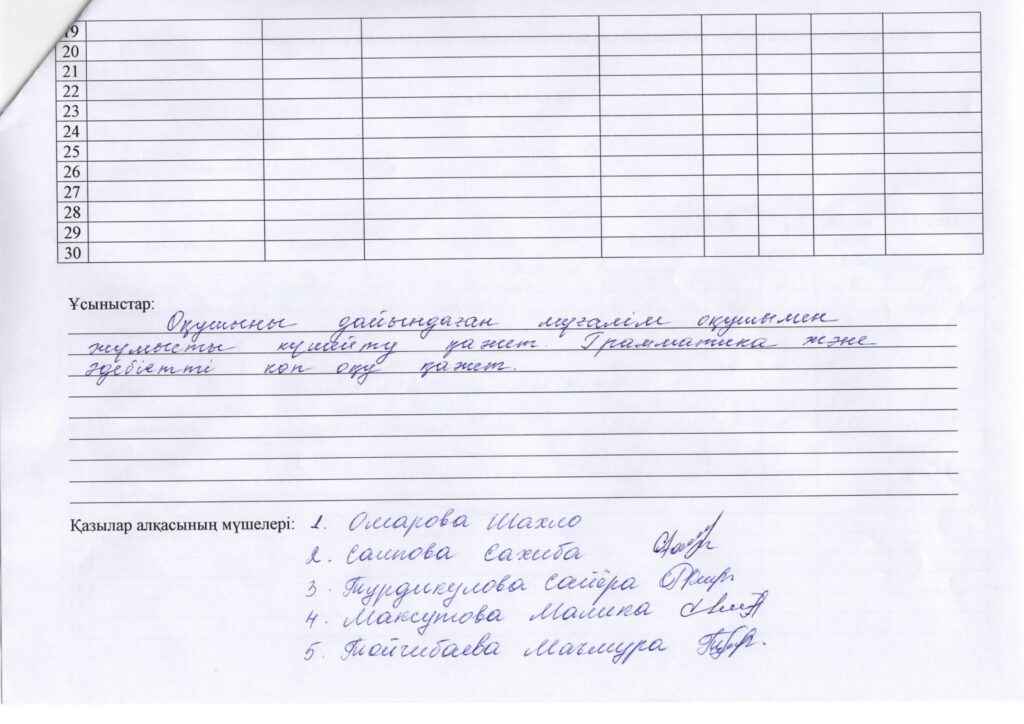 19
20
21
22
23
24
25
26
27
28
29
30
Ұсыныстар:
Оқушыны дайындаған мұғалім оқушымен
жұмысты күшейту қажет. Грамматика және
әдебиетті көп оқу қажет.
Қазылар алқасының мүшелері: 1. Омарова Шахло
2. Саипова Сахиба
3. Турдикулова Сайёра
4. Максутова Малика
5. Тойчибаева Махмура